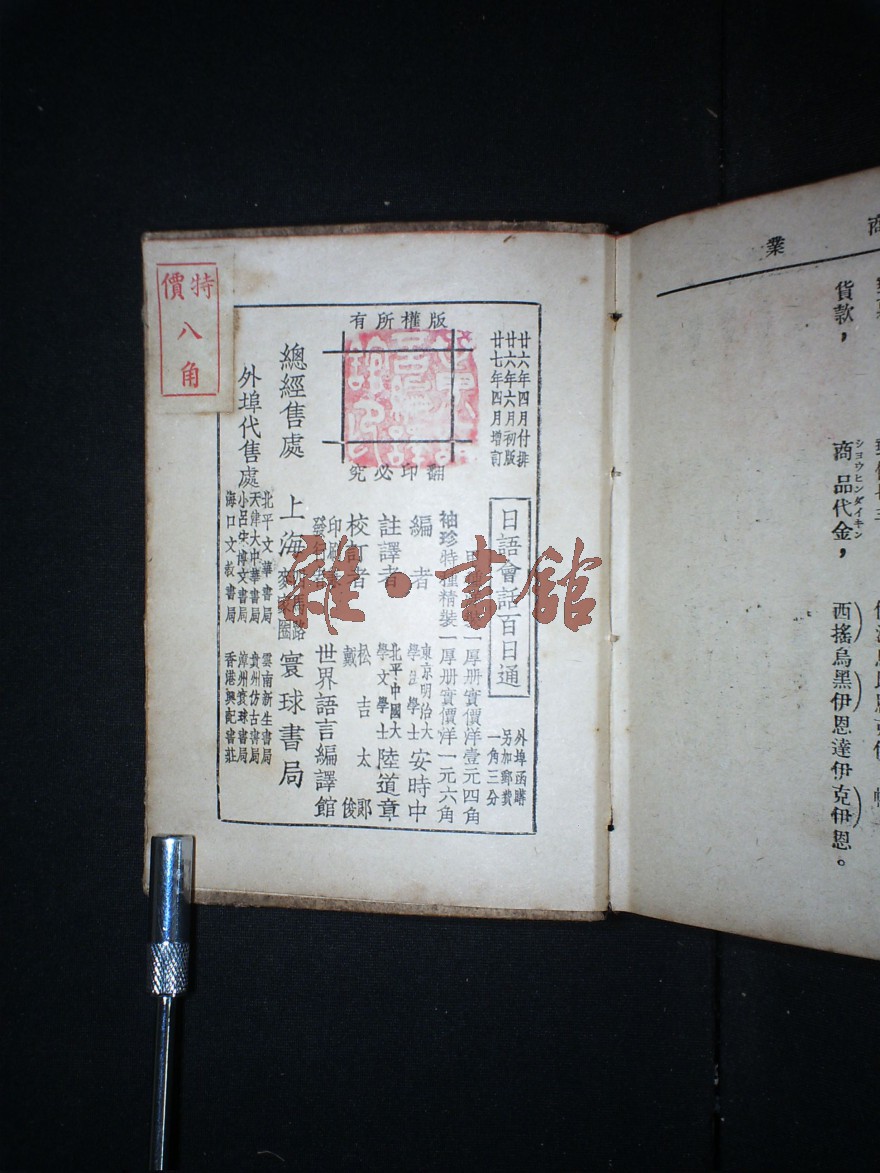 商業
貨款，
商品代金，
ショウヒンダイキン
西搖烏黑伊恩達伊克伊恩。
廿六年四月付排
廿六年六月初版
廿七年四月增訂
日語會話百日通
外埠函購
另加郵費
一角三分
一厚册實價洋壹元四角
袖珍特種精裝一厚册實價洋一元六角
版權所有
翻印必究
編者
東京明治大學法學士
安時中
註譯者
北平中國大學文學士
陸道章
校訂者
松吉太郎
戴俊
世界語言編譯館
總經售處
上海
寰球書局
外埠代售處
北平文華書局
天津大中華書局
小呂宋博文書局
海口文裁書局
雲南新生書局
貴州仿古書局
漳州寰球書局
香港興記書莊
特價
八角
雜·書館